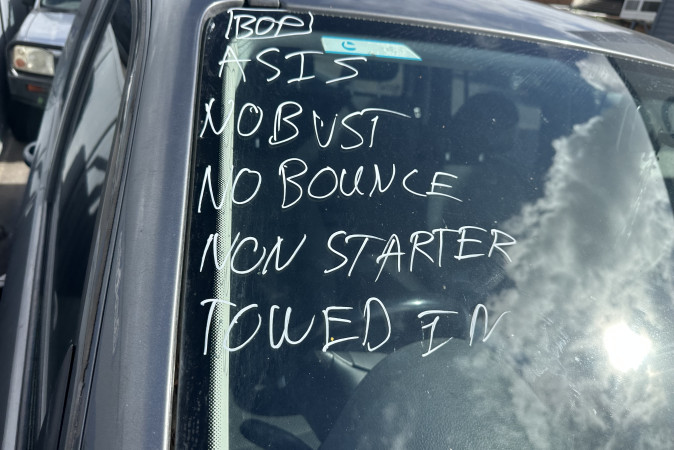 BOP
ASIS
NO BUST
NO BOUNCE
NON STARTER
TOWED IN